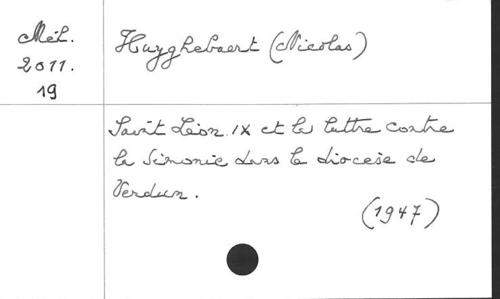 Mél.
2011.
19
Huyghebaert (Nicolas)
Saint Léon IX et la lutte contre
la simonie dans le diocèse de
Verdun.
(1947)